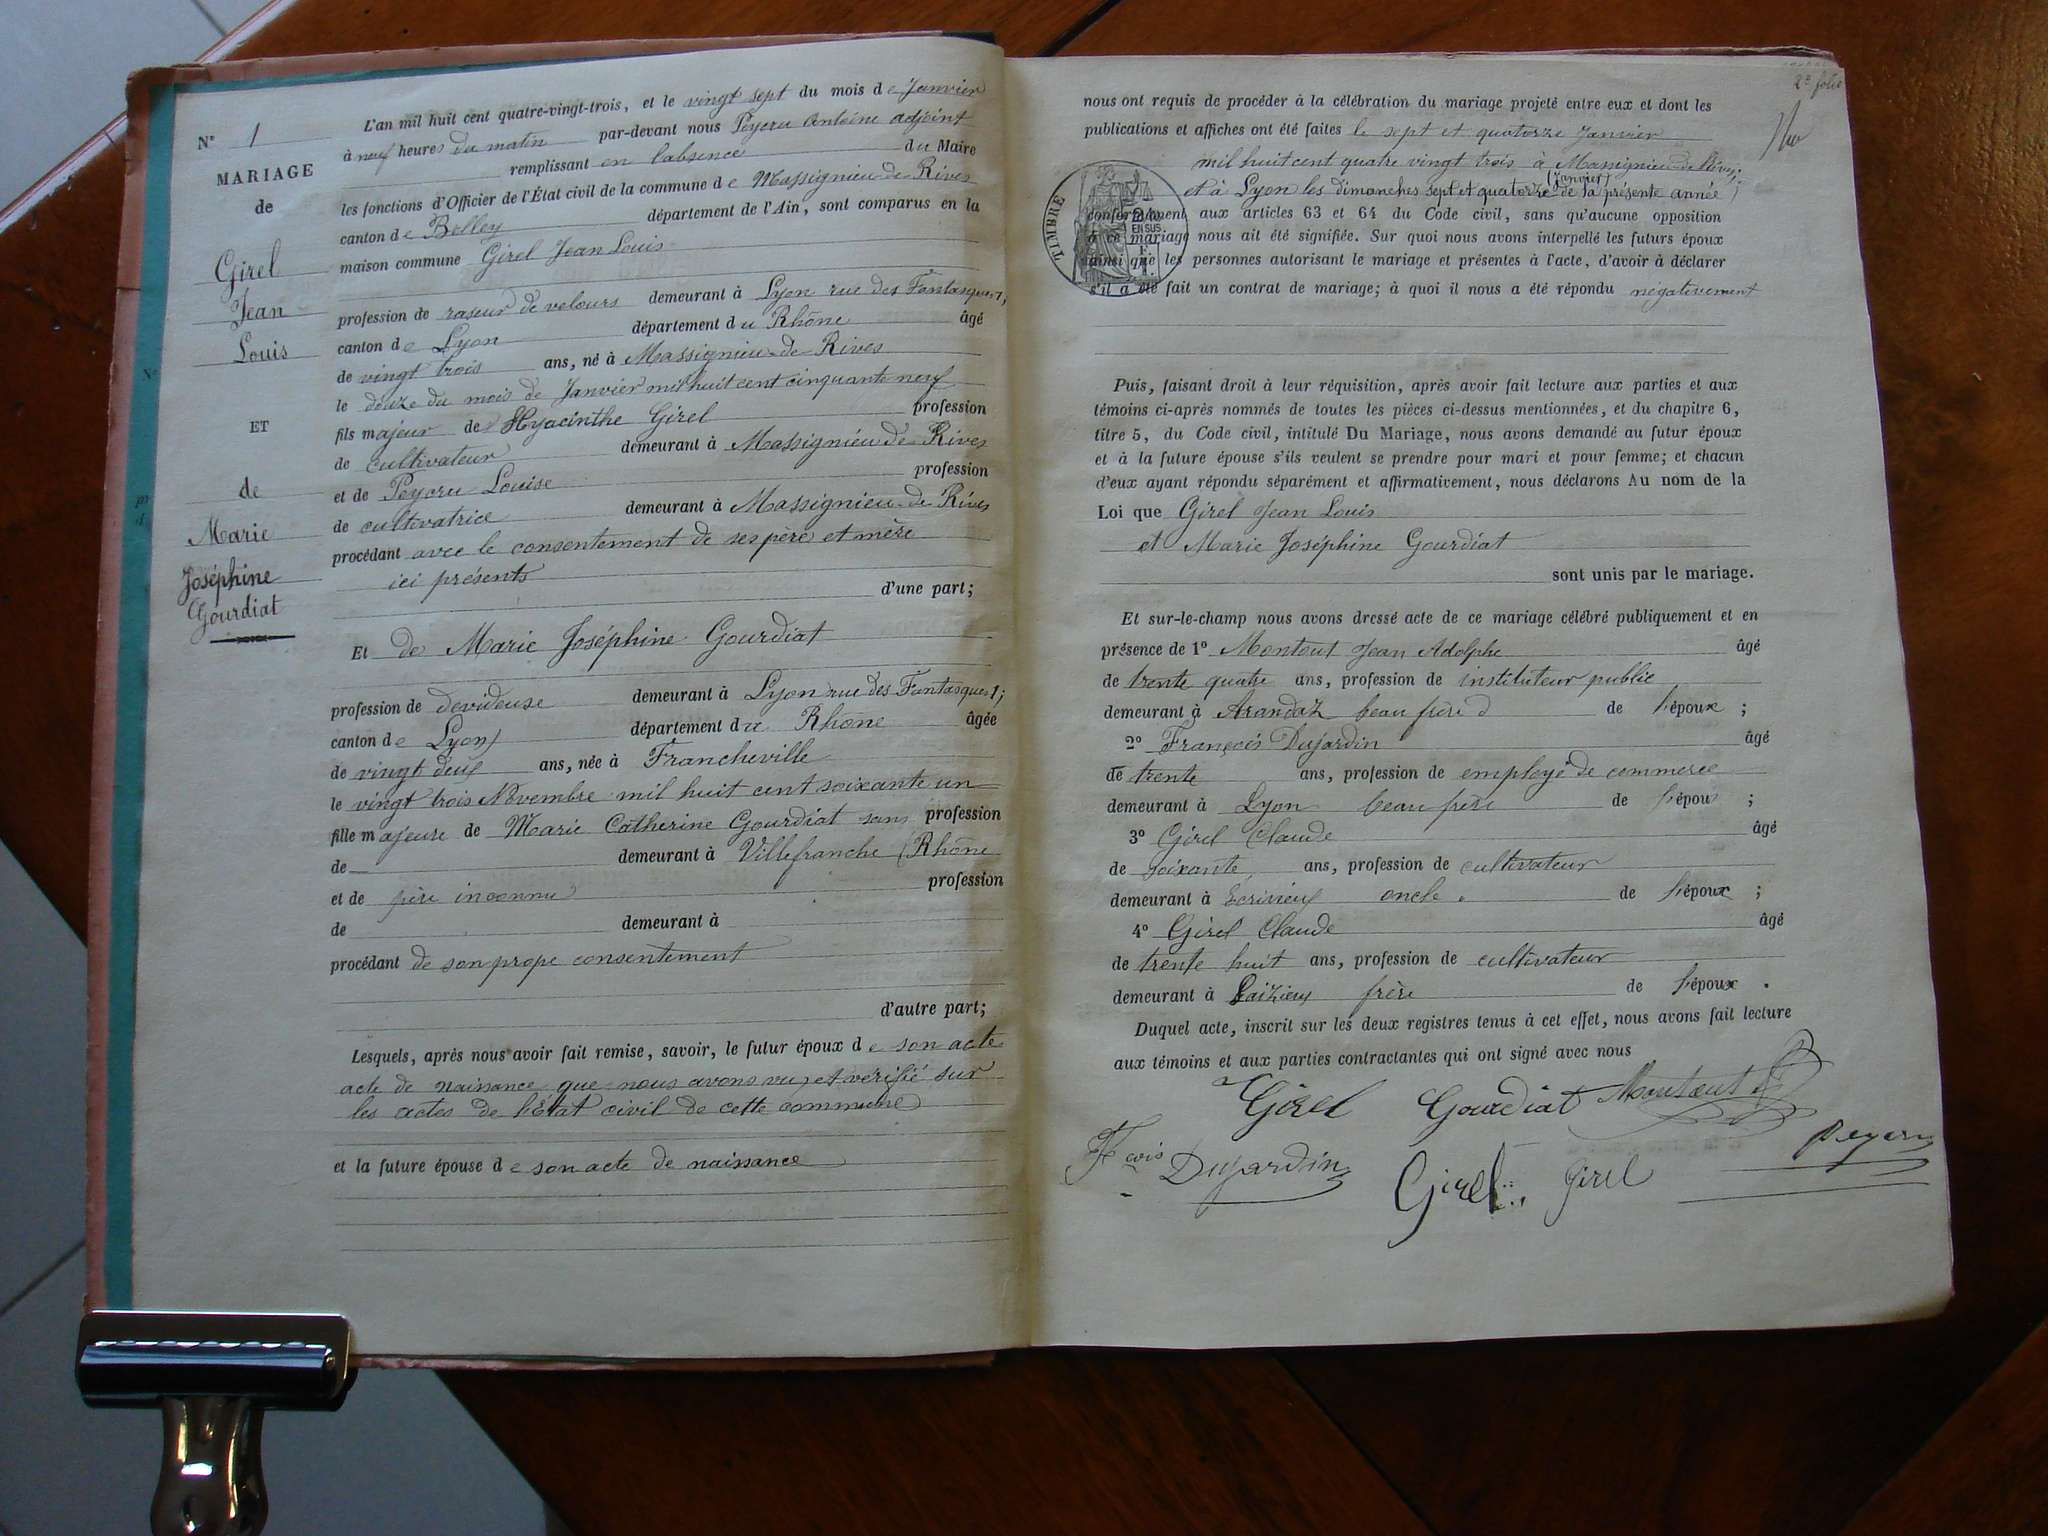 N° 1
MARIAGE
de
Girel
Jean
Louis
ET
de
Marie
Joséphine
Gourdiat
L'an mil huit cent quatre-vingt-trois, et le vingt sept du mois de Janvier
à neuf heures du matin par-devant nous Peycru Antoine adjoint
remplissant en l'absence du Maire
les fonctions d'Officier de l'État civil de la commune de Massignieu de Rives
canton de Belley département de l'Ain, sont comparus en la
maison commune Girel Jean Louis
profession de raseur de velours demeurant à Lyon rue des Fantasques 1;
canton de Lyon département du Rhône âgé
de vingt trois ans, né à Massignieu de Rives
le douze du mois de Janvier mil huit cent cinquante neuf
fils majeur de Hyacinthe Girel profession
de cultivateur demeurant à Massignieu de Rives
et de Peycru Louise profession
de cultivatrice demeurant à Massignieu de Rives
procédant avec le consentement de ses père et mère
ici présents
d'une part;
Et de Marie Joséphine Gourdiat
profession de devideuse demeurant à Lyon rue des Fantasques 1;
canton de Lyon département du Rhône âgée
de vingt deux ans, née à Francheville
le vingt trois Novembre mil huit cent soixante un
fille majeure de Marie Catherine Gourdiat sans profession
de demeurant à Villefranche (Rhône
et de père inconnu profession
de demeurant à
procédant de son prope consentement
d'autre part;
Lesquels, après nous avoir fait remise, savoir, le futur époux de son acte
acte de naissance que nous avons vu et vérifié sur
les actes de l'Etat civil de cette commune
et la future épouse de son acte de naissance
2e folio
nous ont requis de procéder à la célébration du mariage projeté entre eux et dont les
publications et affiches ont été faites le sept et quatorze Janvier
mil huit cent quatre vingt trois à Massignieu de Rives;
(janvier)
et à Lyon les dimanches sept et quatorze de la présente année
TIMBRE
2/10 EN SUS.
conformément aux articles 63 et 64 du Code civil, sans qu'aucune opposition
à ce mariage nous ait été signifiée. Sur quoi nous avons interpellé les futurs époux
ainsi que les personnes autorisant le mariage et présentes à l'acte, d'avoir à déclarer
s'il a été fait un contrat de mariage; à quoi il nous a été répondu négativement
Puis, faisant droit à leur réquisition, après avoir fait lecture aux parties et aux
témoins ci-après nommés de toutes les pièces ci-dessus mentionnées, et du chapitre 6,
titre 5, du Code civil, intitulé Du Mariage, nous avons demandé au futur époux
et à la future épouse s'ils veulent se prendre pour mari et pour femme; et chacun
d'eux ayant répondu séparément et affirmativement, nous déclarons Au nom de la
Loi que Girel Jean Louis
et Marie Joséphine Gourdiat
sont unis par le mariage.
Et sur-le-champ nous avons dressé acte de ce mariage célébré publiquement et en
présence de 1° Montout Jean Adolphe âgé
de trente quatre ans, profession de instituteur public
demeurant à Arandaz beau frère de l'époux;
2° François Dujardin âgé
de trente ans, profession de employé de commerce
demeurant à Lyon beau frère de l'époux;
3° Girel Claude âgé
de soixante ans, profession de cultivateur
demeurant à Ecrivieux oncle de l'époux;
4° Girel Claude âgé
de trente huit ans, profession de cultivateur
demeurant à frère de l'époux.
Duquel acte, inscrit sur les deux registres tenus à cet effet, nous avons fait lecture
aux témoins et aux parties contractantes qui ont signé avec nous
Girel Gourdiat Montout
Fcois Dujardin Girel Girel Peycru